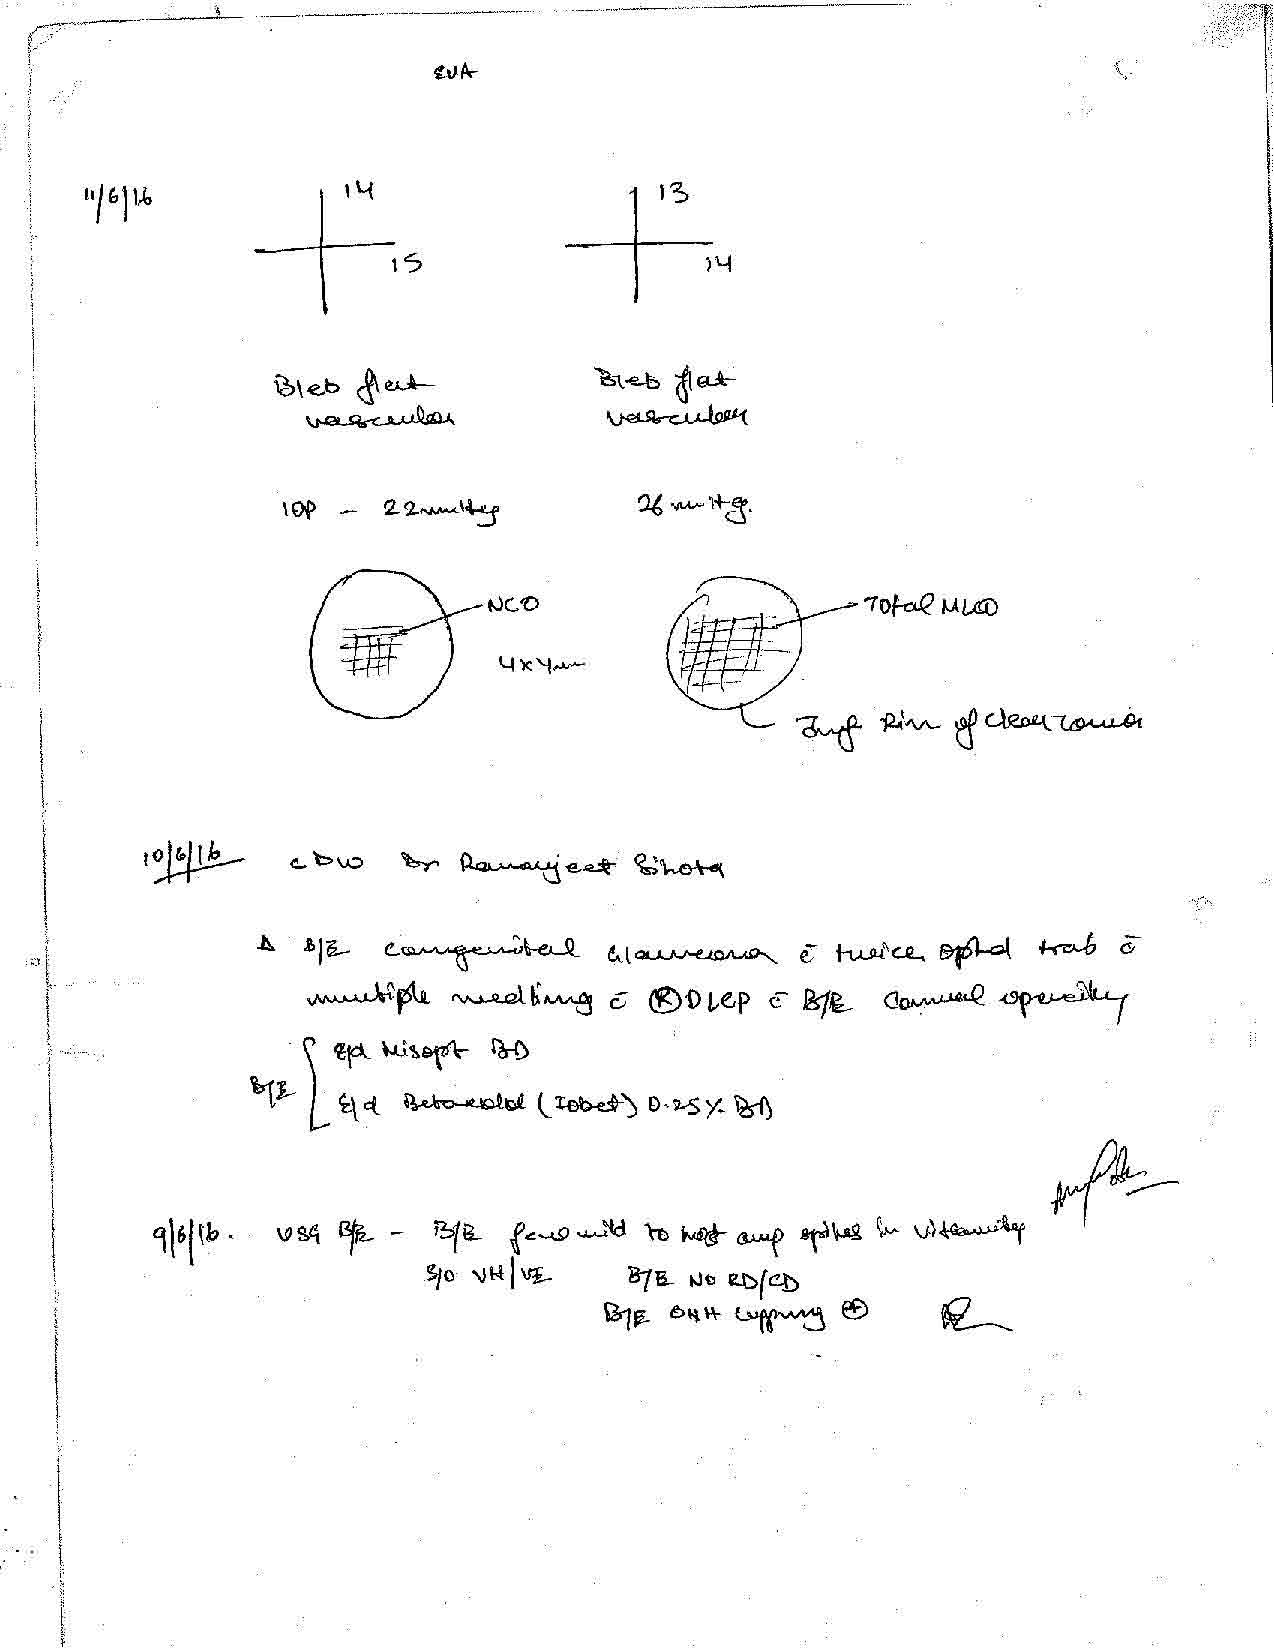 EUA
11/6/16 14 13
15 14
Bleb flat Bleb flat
vascular vascular
IOP - 22mmHg 26mmHg.
NCO Total MLCO
4x4mm
Inf Rim of clear cornea
10/6/16 c DW Dr Ramanjeet Sihota
Δ B/E congenital Glaucoma c̄ twice optd trab c̄
multiple needling c̄ Ⓡ DLCP c̄ B/E Corneal opacity
B/E e/d Misopt BD
E/d Betaxolol (Iobet) 0.25% BD
9/6/16. USG B/E - B/E few mild to mod amp spikes in vit cavity
S/O VH/VE B/E NO RD/CD
B/E ONH cupping ⊕